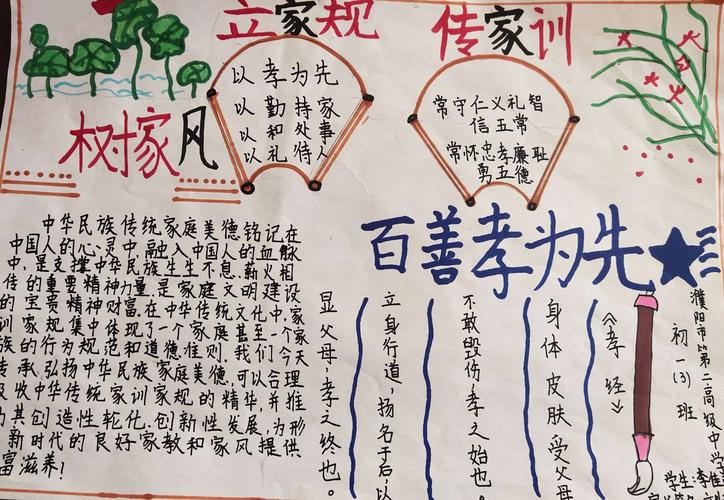 立家规 传家训
树家风
以孝为先
以勤持家
以和处事
以礼待人
常守仁义礼智
信五常
常怀忠孝廉耻
勇五德
中华民族传统家庭美德铭记在
中国人的心灵中融入中国人的血脉
中,是支撑中华民族生生不息,薪火相
传的重要精神力量.是家庭文明建设
的宝贵精神财富.在中华传统文化中,家
训家规集中体现了一个家庭甚至一个家
族的行为规范和道德准则.我们今天
传承弘扬中华民族家庭美德,可以合理
吸收中华传统家训家规的精华,并推
其创造性轮化.创新性发展,为形
新时代的良好家教和家风提供
富滋养!
百善孝为先
《孝经》
身体 皮肤 受父母
不敢毁伤,孝之始也。
立身行道,扬名于后以
显父母,孝之终也。
濮阳市第二高级中学
初一(3)班
学生:李